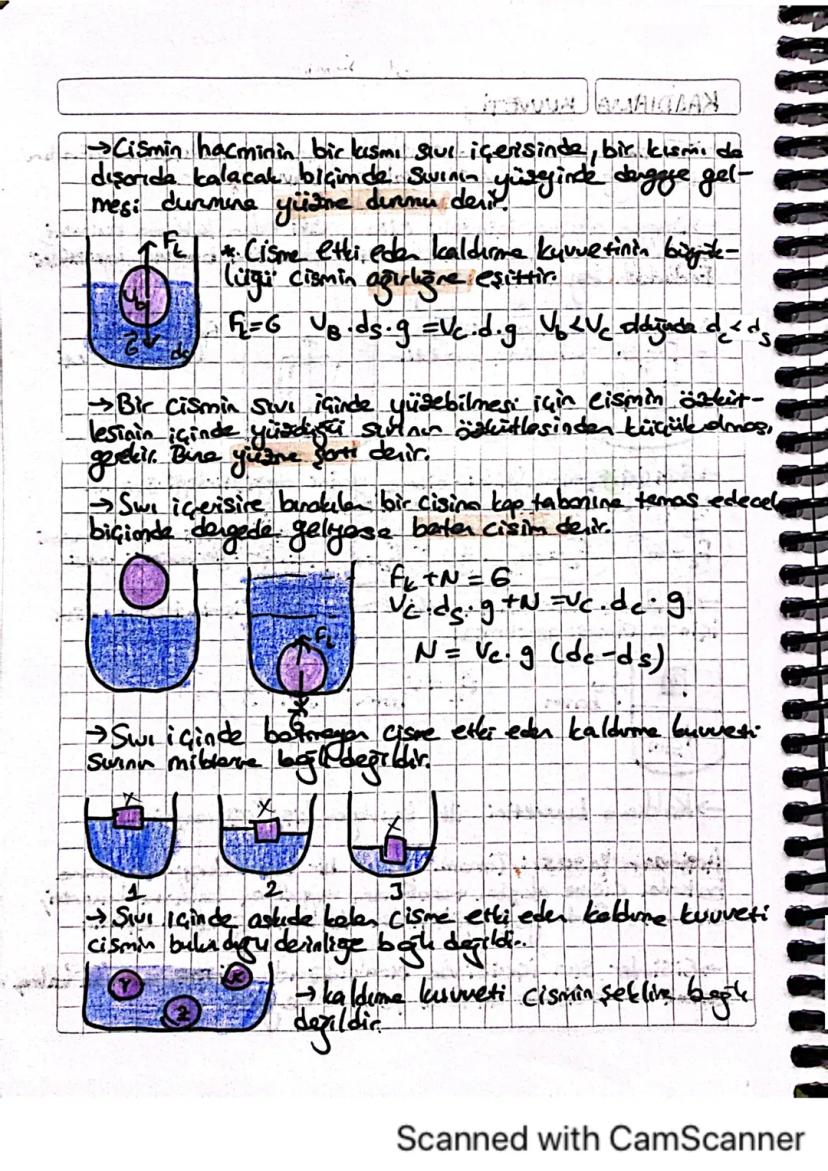 →Cismin hacminin bir kısmı sıvı içerisinde, bir kısmı da
dışarıda kalacak biçimde sıvının yüzeyinde dengeye gel-
mesi durumuna yüzme durumu denir.
FL
* Cisme etki eden kaldırma kuvvetinin büyük-
lüğü cismin ağırlığına eşittir.
Vb
FL=G VB.ds.g =Vc.d.g Vb<Vc olduğunda dc<ds
G ds
→Bir cismin sıvı içinde yüzebilmesi için cismin özküt-
lesinin içinde yüzdüğü sıvının özkütlesinden küçük olması
gerekir. Buna yüzme şartı denir.
→Sıvı içerisine bırakılan bir cisim kap tabanına temas edecek
biçimde dengede geliyosa batan cisim denir.
FL+N=G
Vc.ds.g+N=Vc.dc.g
FL
N= Vc.g (dc-ds)
G
→Sıvı içinde batmayan cisme etki eden kaldırma kuvveti
sıvının miktarına bağlı değildir.
X X X
1 2 3
→Sıvı içinde askıda kalan cisme etki eden kaldırma kuvveti
cismin bulunduğu derinliğe bağlı değildir.
Y Z X
→kaldırma kuvveti cismin şekline bağlı
değildir.
Scanned with CamScanner